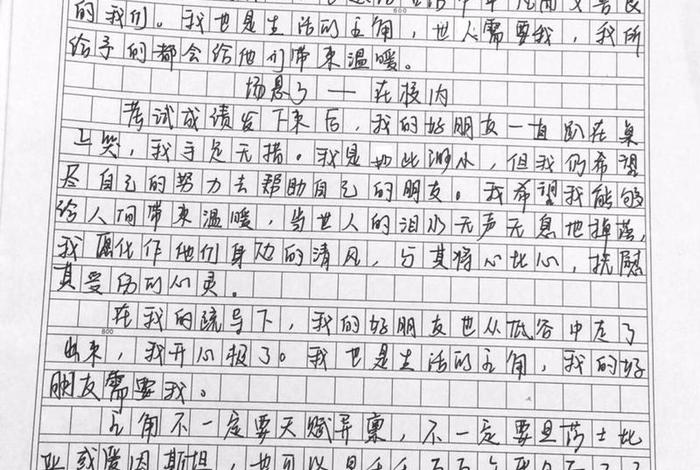 的我们。我也是生活的主角，世人需要我，我所
600
给予的都会给他们带来温暖。
场景3 —— 在校内
考试成绩发下来后，我的好朋友一直趴在桌
上哭，我手足无措。我是如此渺小，但我仍希望
尽自己的努力去帮助自己的朋友。我希望我能够
给人间带来温暖，当世人的泪水无声无息地掉落，
我愿化作他们身边的清风，与其将心比心，抚慰
其受伤的心灵。
在我的疏导下，我的好朋友也从低谷中走了
800
出来，我开心极了。我也是生活的主角，我的好
朋友需要我。
主角不一定要天赋异禀，不一定要是莎士比
亚或爱因斯坦，也可以是千千万万